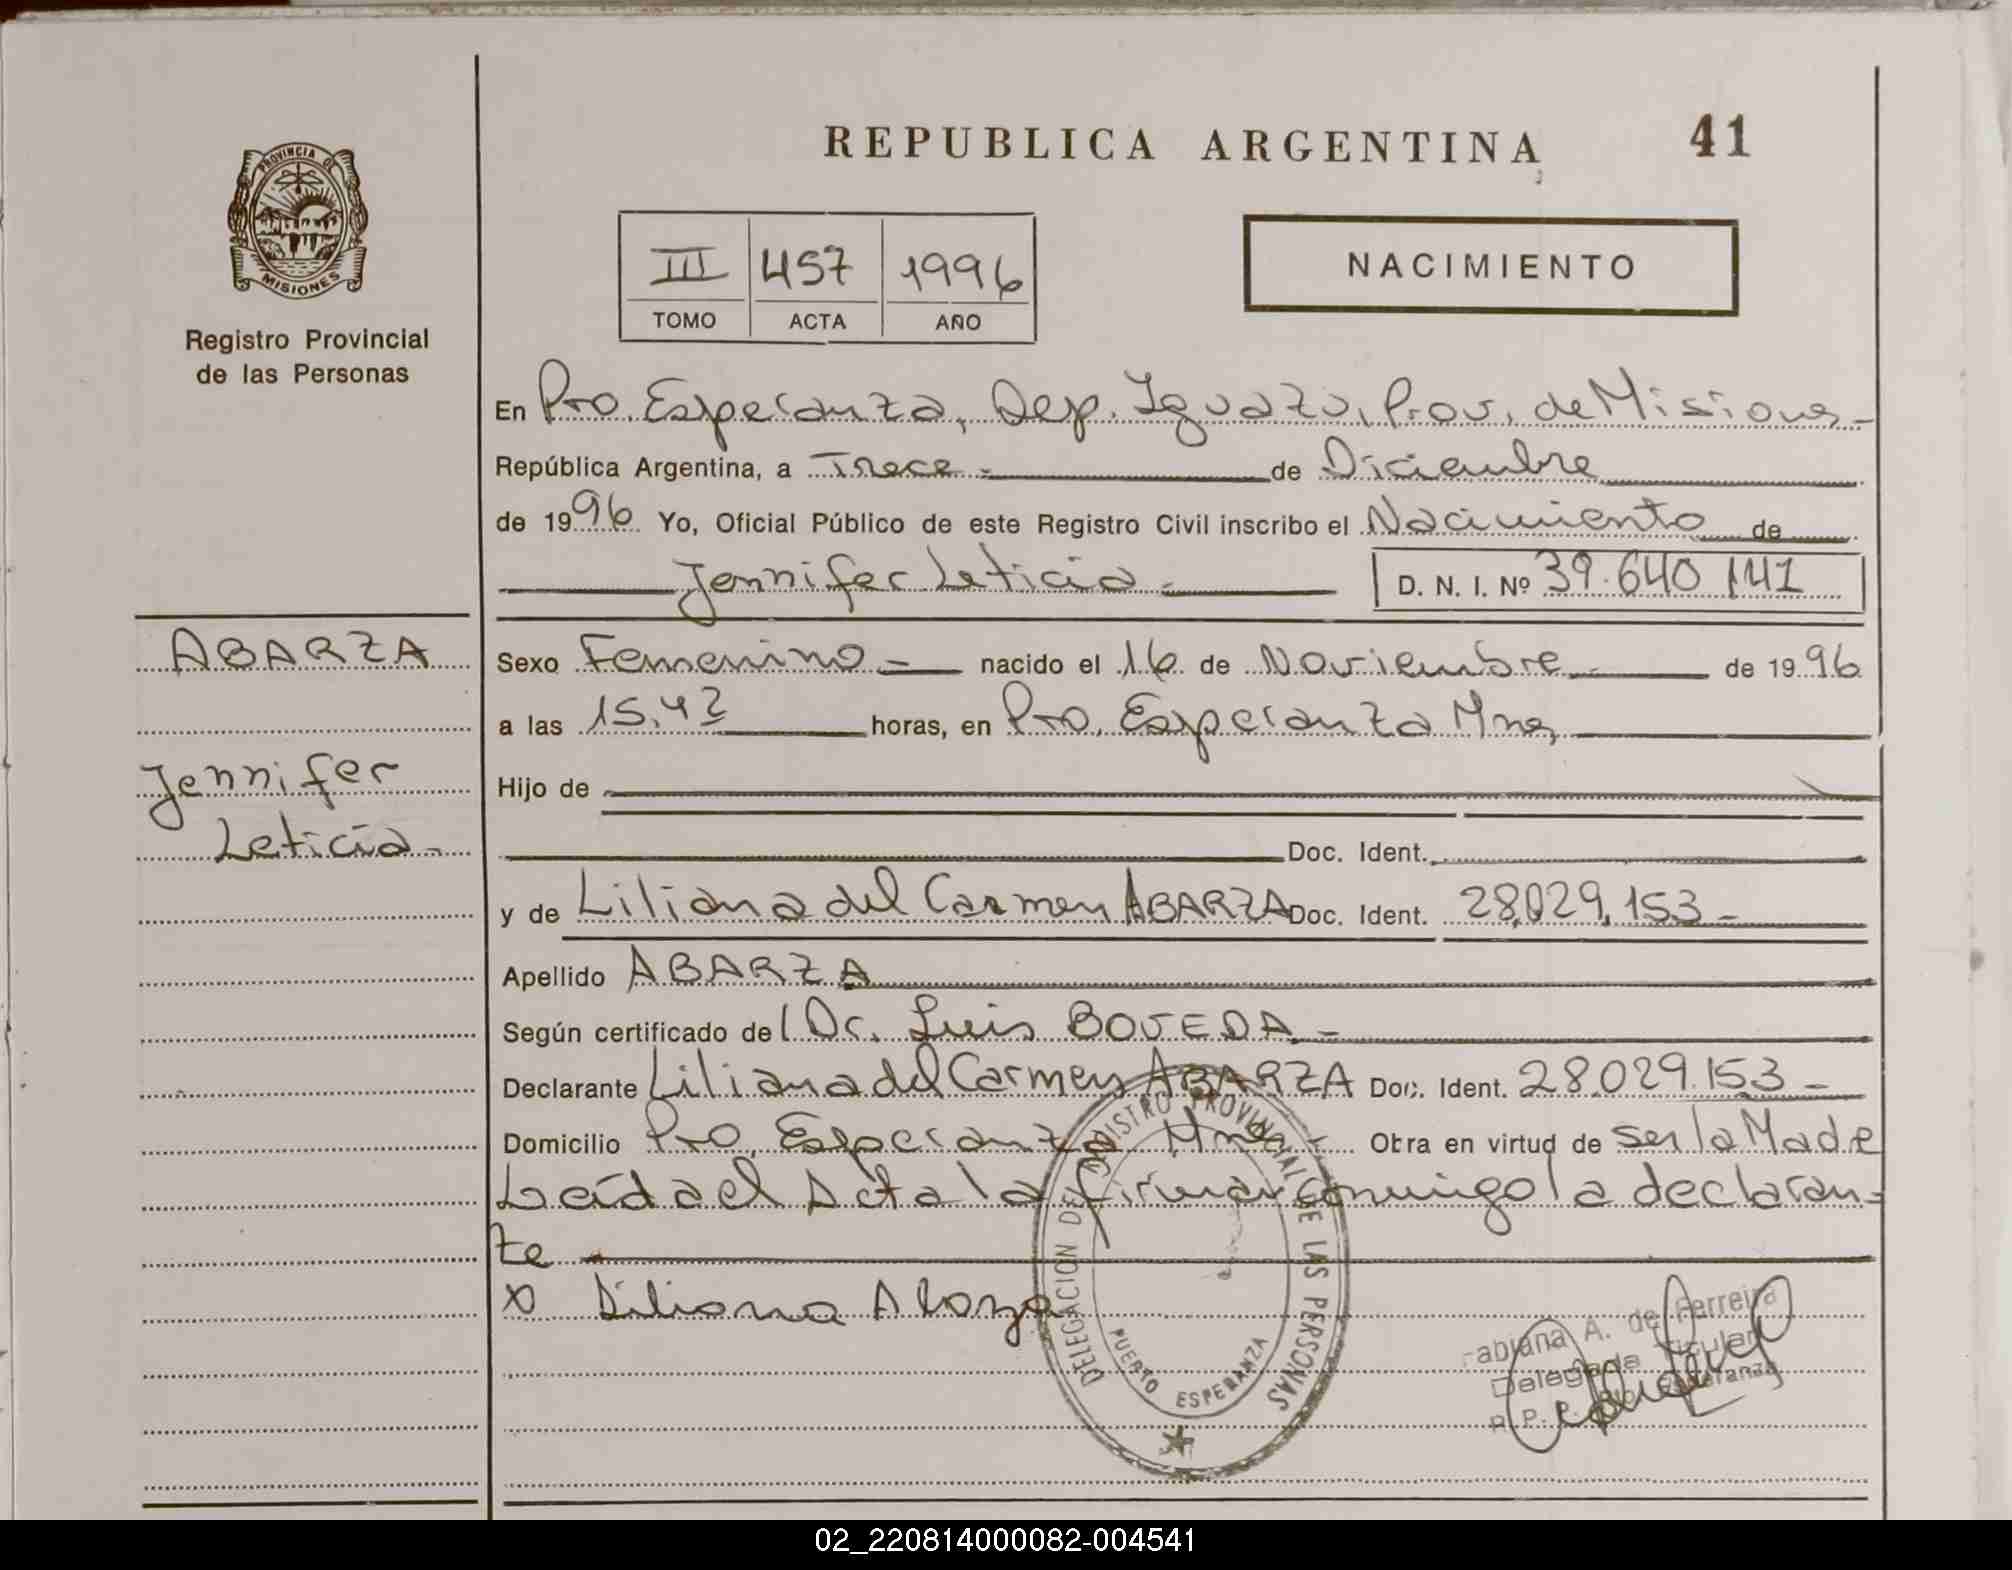 REPUBLICA ARGENTINA 41
PROVINCIA DE
MISIONES
Registro Provincial
de las Personas
III 457 1996
TOMO ACTA AÑO
NACIMIENTO
En Pto. Esperanza, Dep. Iguazú, Prov. de Misiones -
República Argentina, a Trece - de Diciembre
de 1996 Yo, Oficial Público de este Registro Civil inscribo el Nacimiento de
Jennifer Leticia - D. N. I. Nº 39.640.141
ABARZA
Jennifer
Leticia -
Sexo Femenino - nacido el 16 de Noviembre - de 1996
a las 15,43 horas, en Pto. Esperanza Mnes,
Hijo de
Doc. Ident.
y de Liliana del Carmen ABARZA Doc. Ident. 28.029.153 -
Apellido ABARZA
Según certificado del Dr. Luis BOVEDA -
Declarante Liliana del Carmen ABARZA Doc. Ident. 28.029.153 -
Domicilio Pto. Esperanza Mnes - Obra en virtud de ser la Madre
Leída el Acta la firman conmigo la declaran-
te
X Liliana Abarza
DELEGACION DEL REGISTRO PROVINCIAL DE LAS PERSONAS
PUERTO ESPERANZA
Fabiana A. de Ferreira
Delegada Titular
R. P. P. Pto. Esperanza
02_220814000082-004541